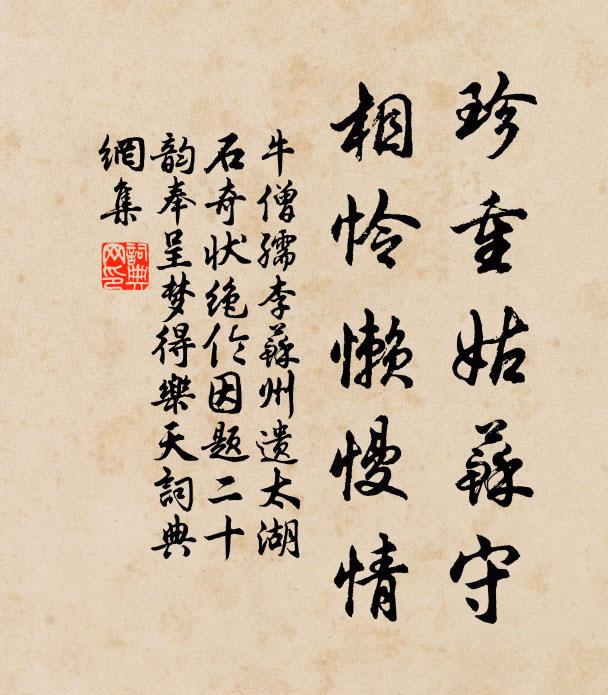 珍重姑蘇守
相怜懒慢情
牛僧孺李蘇州遗太湖
石奇状绝伦因题二十
韵奉呈梦得樂天詞典
網集
詞典
网印